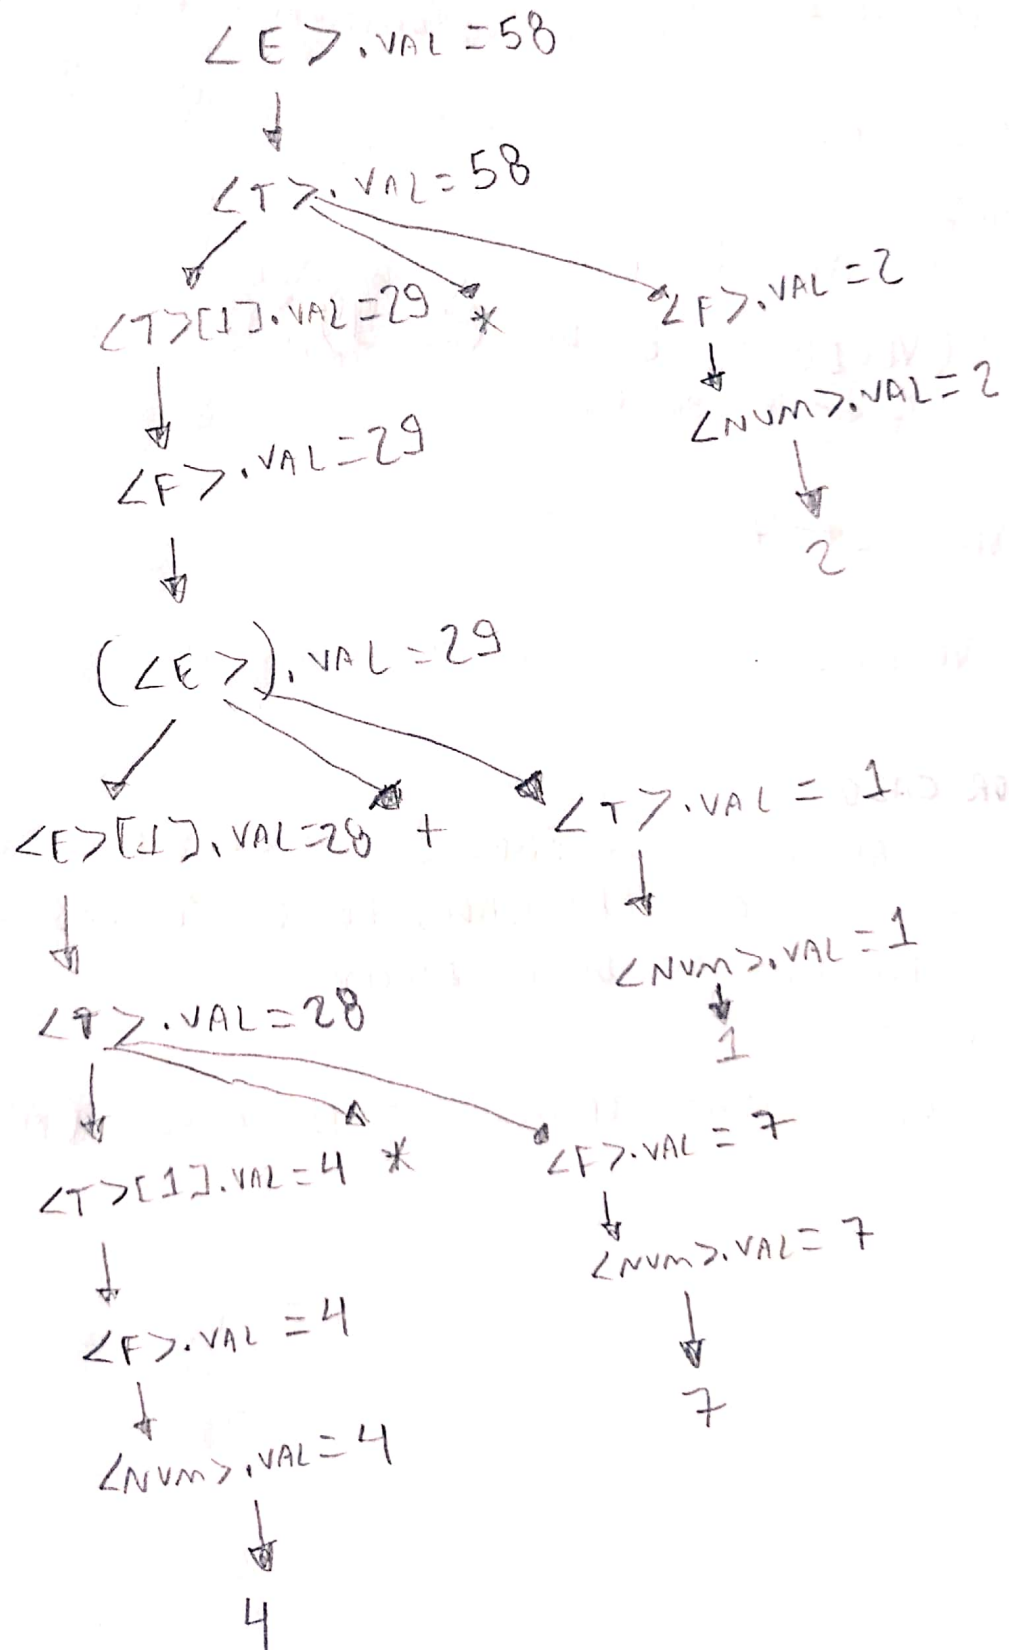 <E>.VAL=58
<T>.VAL=58
<T>[1].VAL=29 * <F>.VAL=2
<F>.VAL=29 <NUM>.VAL=2
2
(<E>).VAL=29
<E>[1].VAL=28 + <T>.VAL=1
<NUM>.VAL=1
<T>.VAL=28 1
<T>[1].VAL=4 * <F>.VAL=7
<NUM>.VAL=7
<F>.VAL=4
7
<NUM>.VAL=4
4